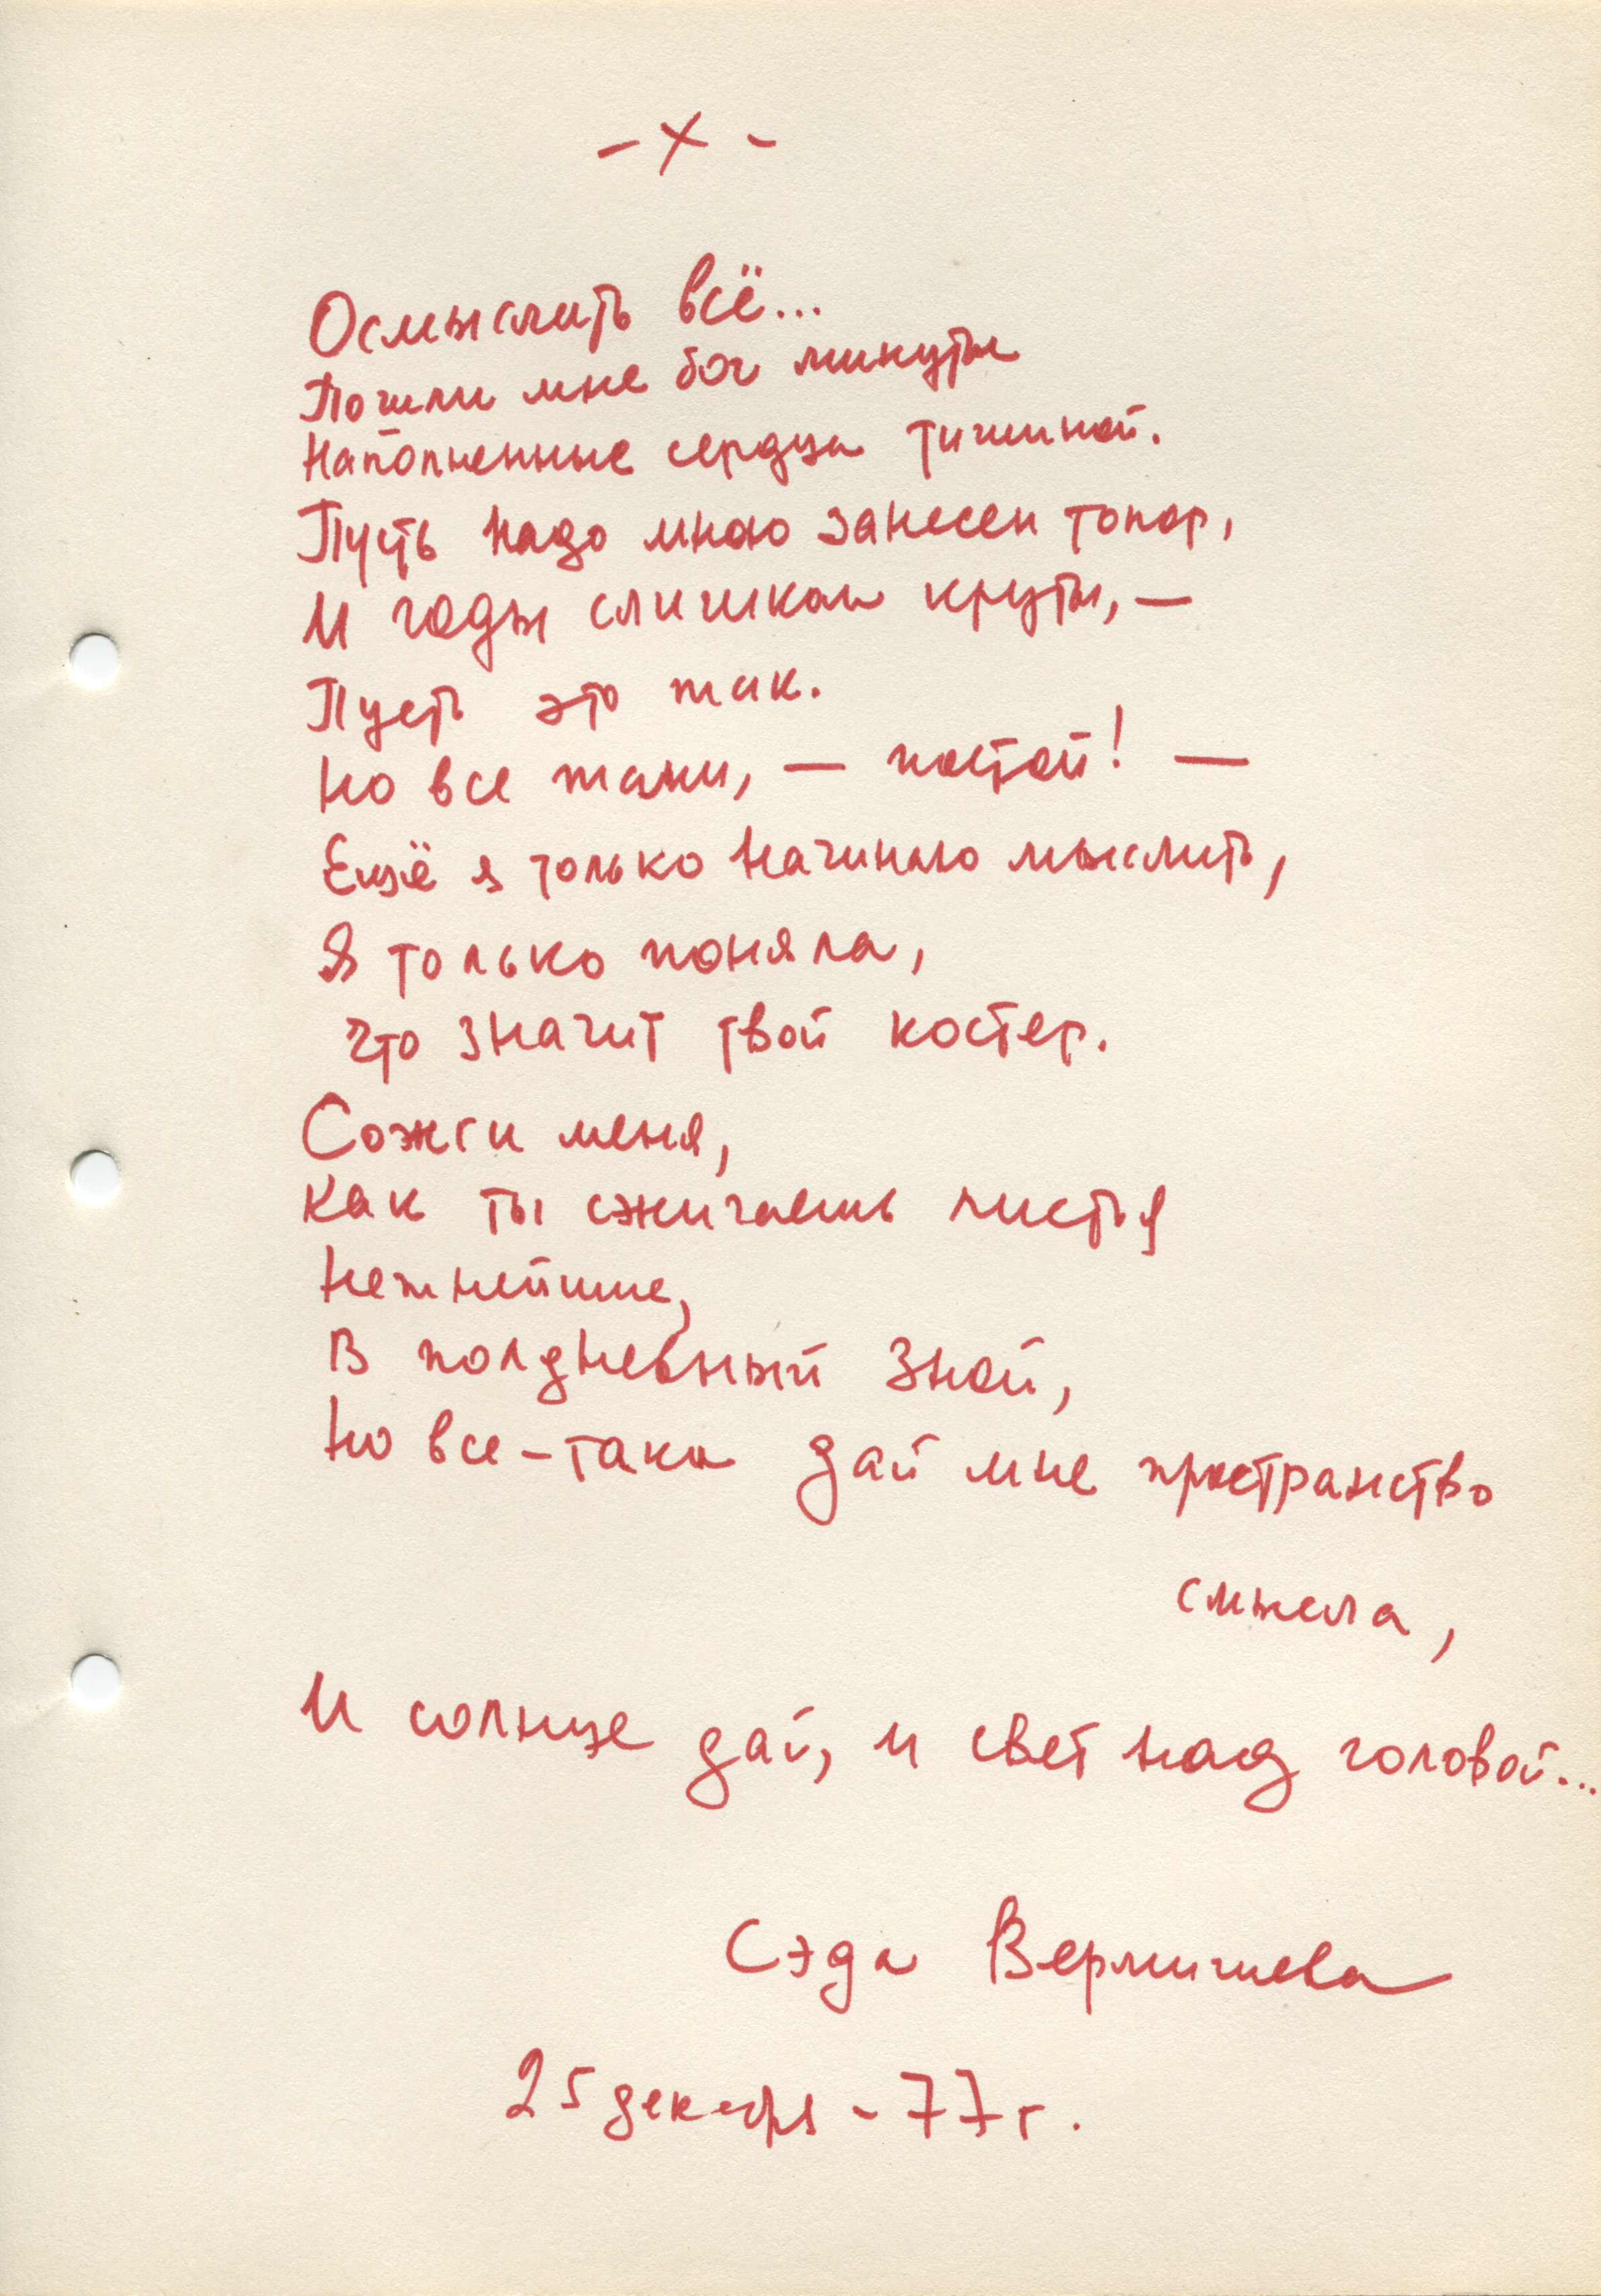 - х -
Осмыслить всё...
Пошли мне бог минуты
Наполненные сердца тишиной.
Пусть надо мною занесен топор,
И годы слишком круты, —
Пусть это так.
Но все таки, — постой! —
Ещё я только начинаю мыслить,
Я только поняла,
Что значит твой костер.
Сожги меня,
Как ты сжигаешь листья
Нежнейшие,
В полдневный зной,
Но все-таки дай мне пространство
смысла,
И солнце дай, и свет над головой...
Сэда Вермишева
25 декабря - 77 г.